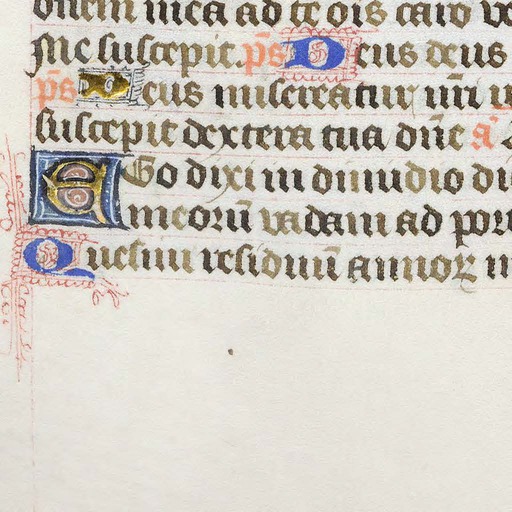 onem mea ad te ois caro ve
Me suscepit. ps Deus deus
ps Deus misereatur nri
suscepit dextera tua dne a
EGo dixi in dimidio di
meoru vadam ad por
Quesiui residuu annoꝝ m